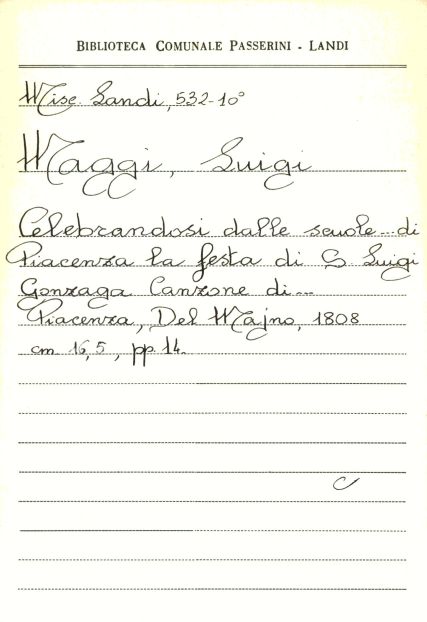 BIBLIOTECA COMUNALE PASSERINI - LANDI
Misc. Landi, 532-10°
Maggi, Luigi
Celebrandosi dalle scuole... di
Piacenza la festa di S Luigi
Gonzaga Canzone di...
Piacenza, Del Majno, 1808
cm. 16,5, pp. 14.
C